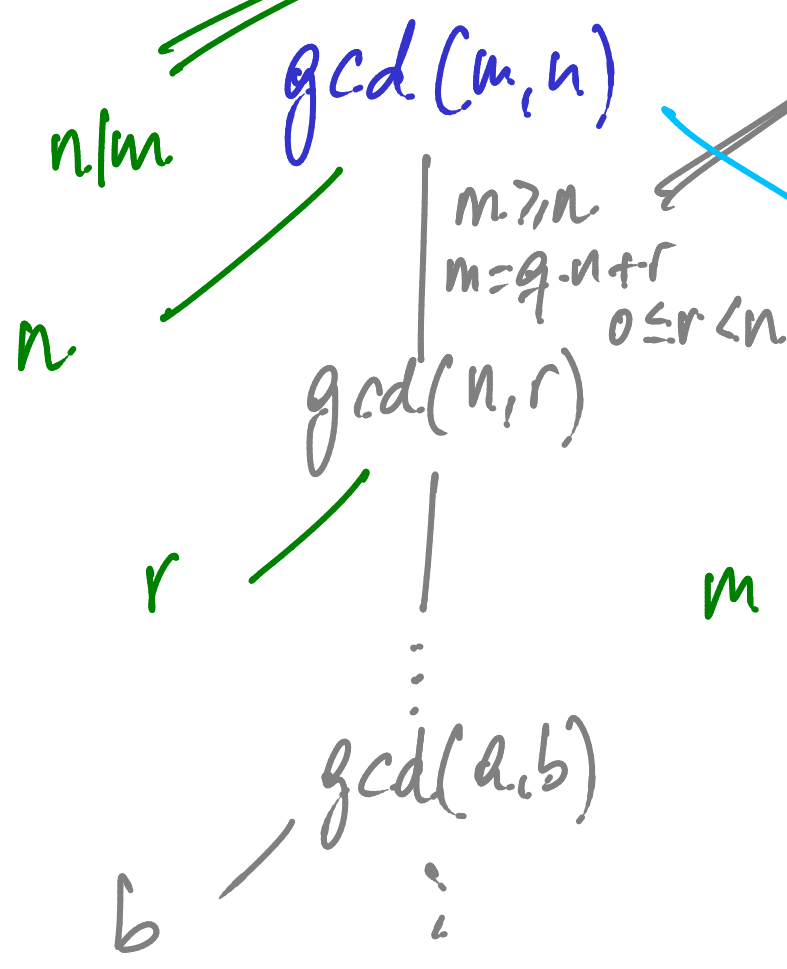 gcd(m,n)
n|m
m≥n
m=q·n+r
0≤r<n
n
gcd(n,r)
r
m
⋮
gcd(a,b)
b
⋮